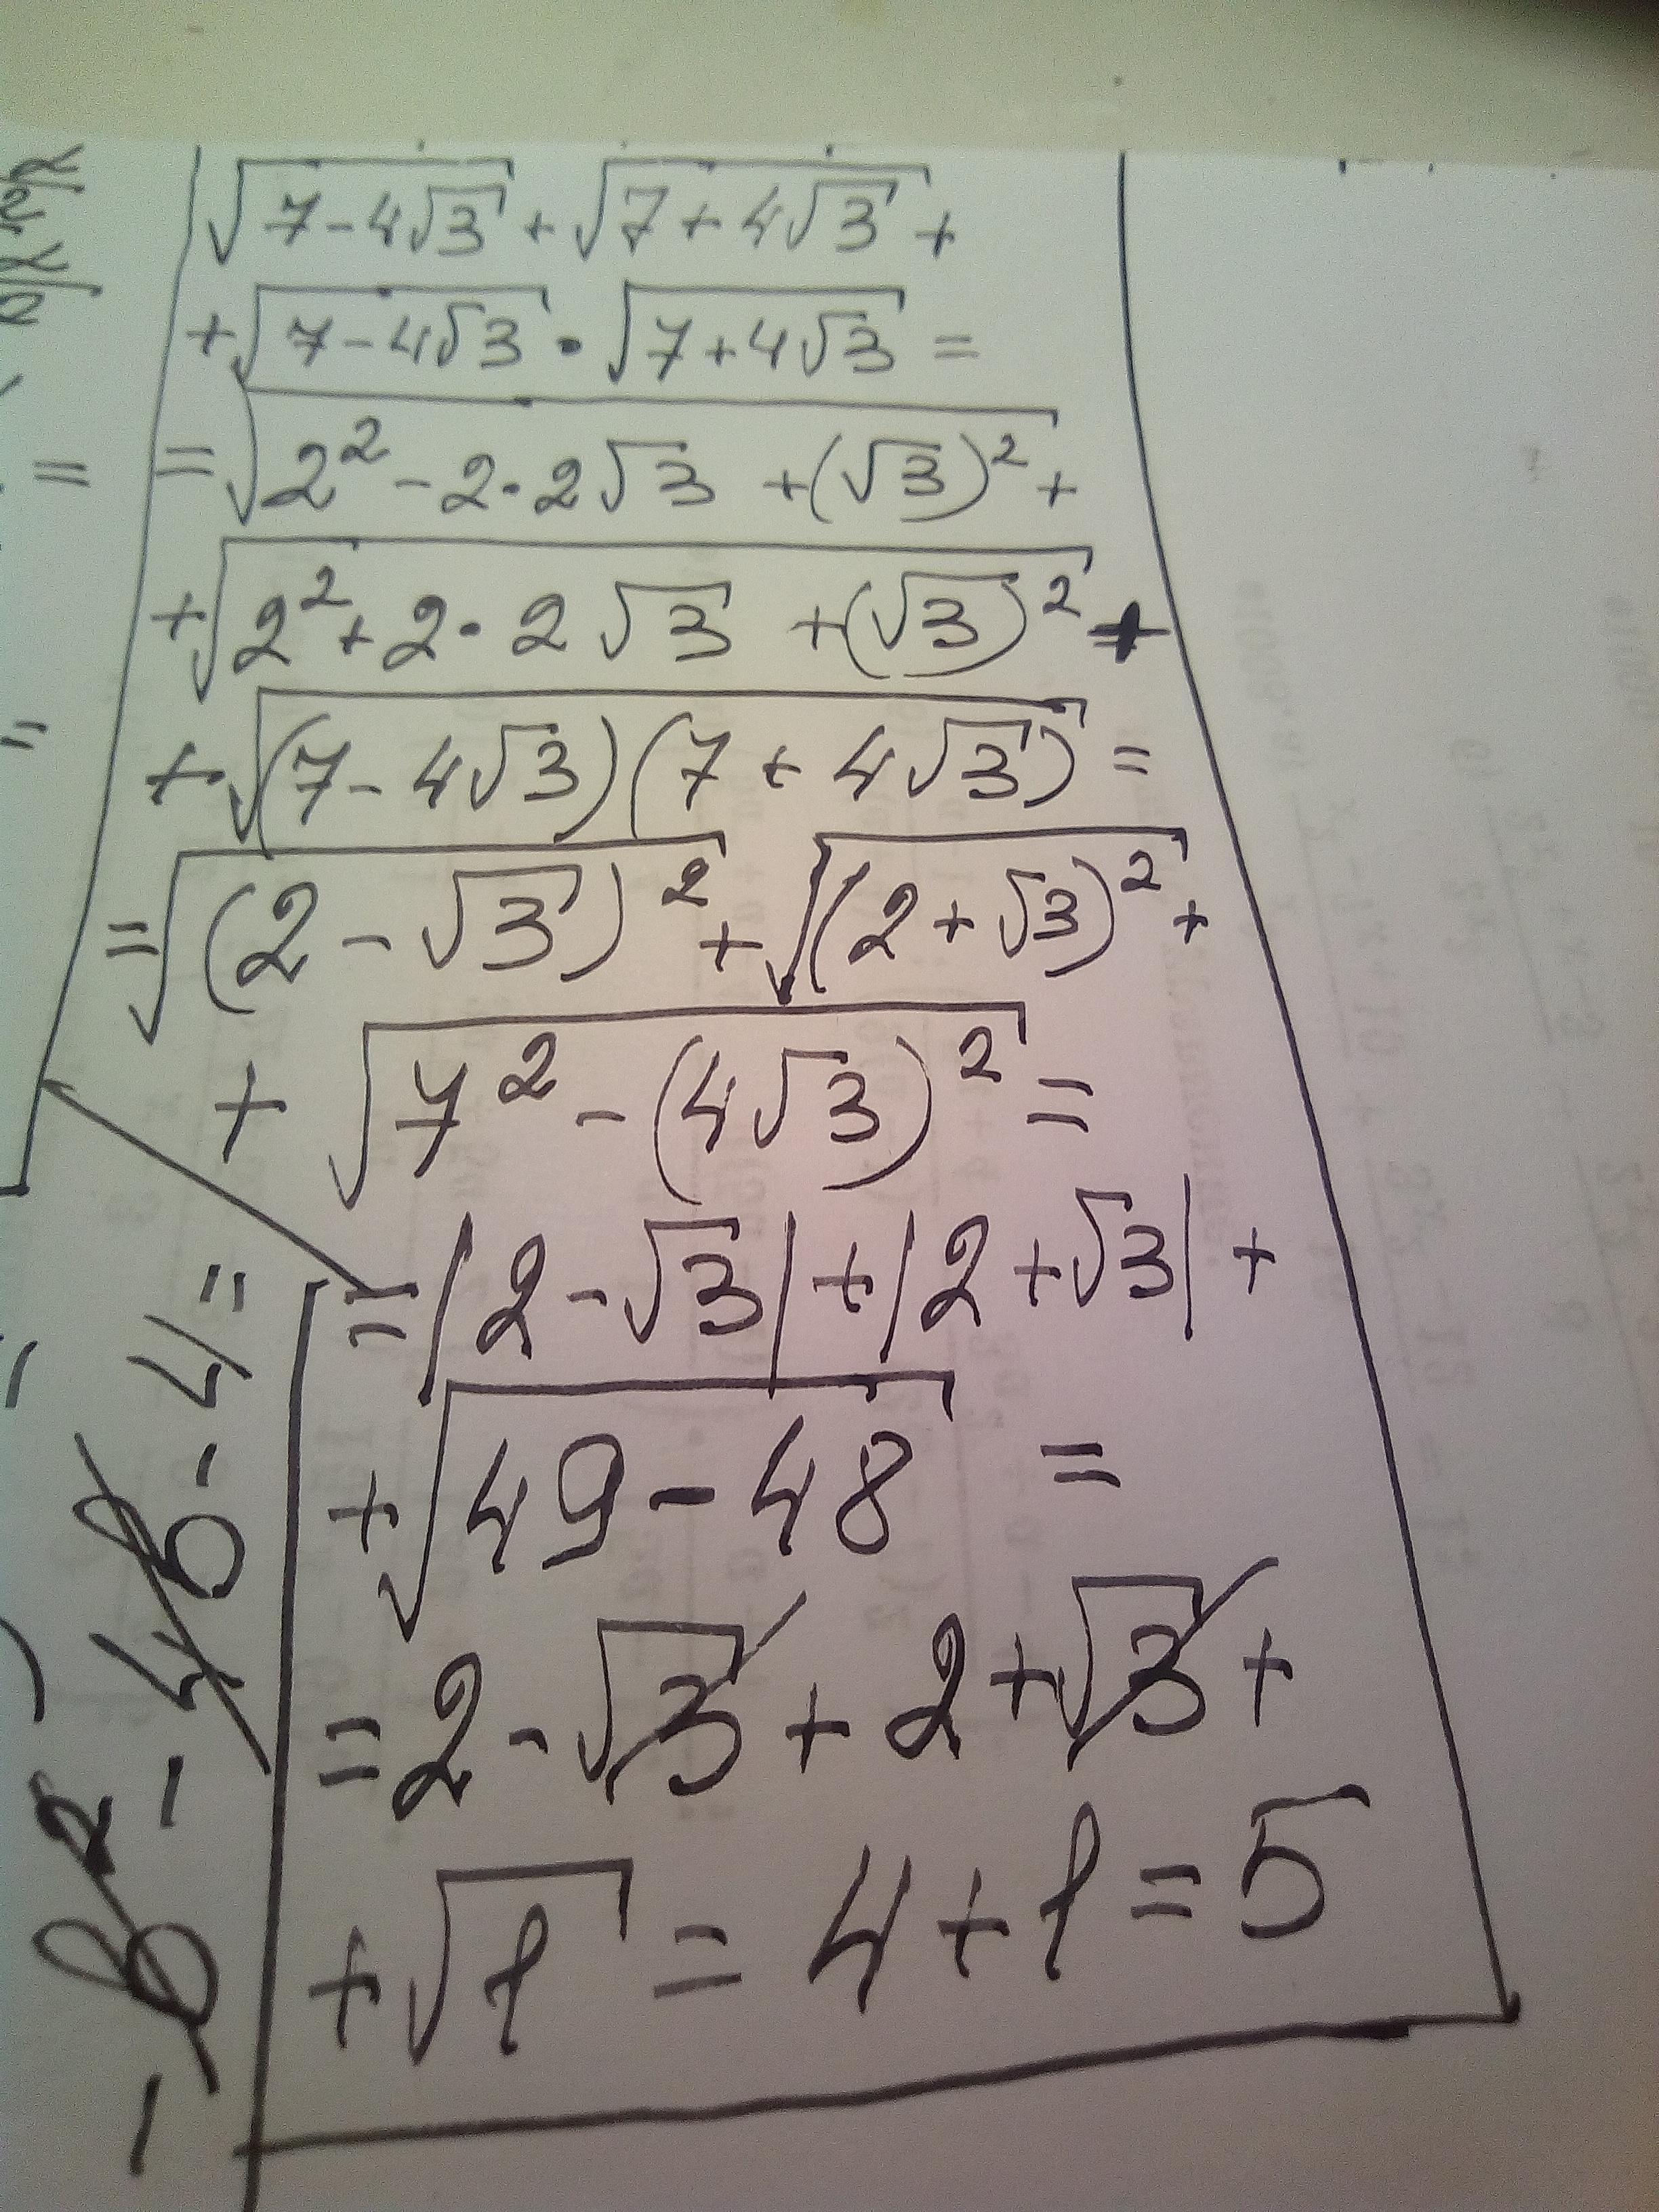 √(7-4√3) + √(7+4√3) +
+√(7-4√3) · √(7+4√3) =
= √(2² - 2·2√3 + (√3)²) +
+√(2² + 2·2√3 + (√3)²) +
+√((7-4√3)(7+4√3)) =
= √((2-√3)²) + √((2+√3)²) +
+ √(7² - (4√3)²) =
= |2-√3| + |2+√3| +
+√(49-48) =
= 2-√3 + 2+√3 +
+√1 = 4+1 = 5